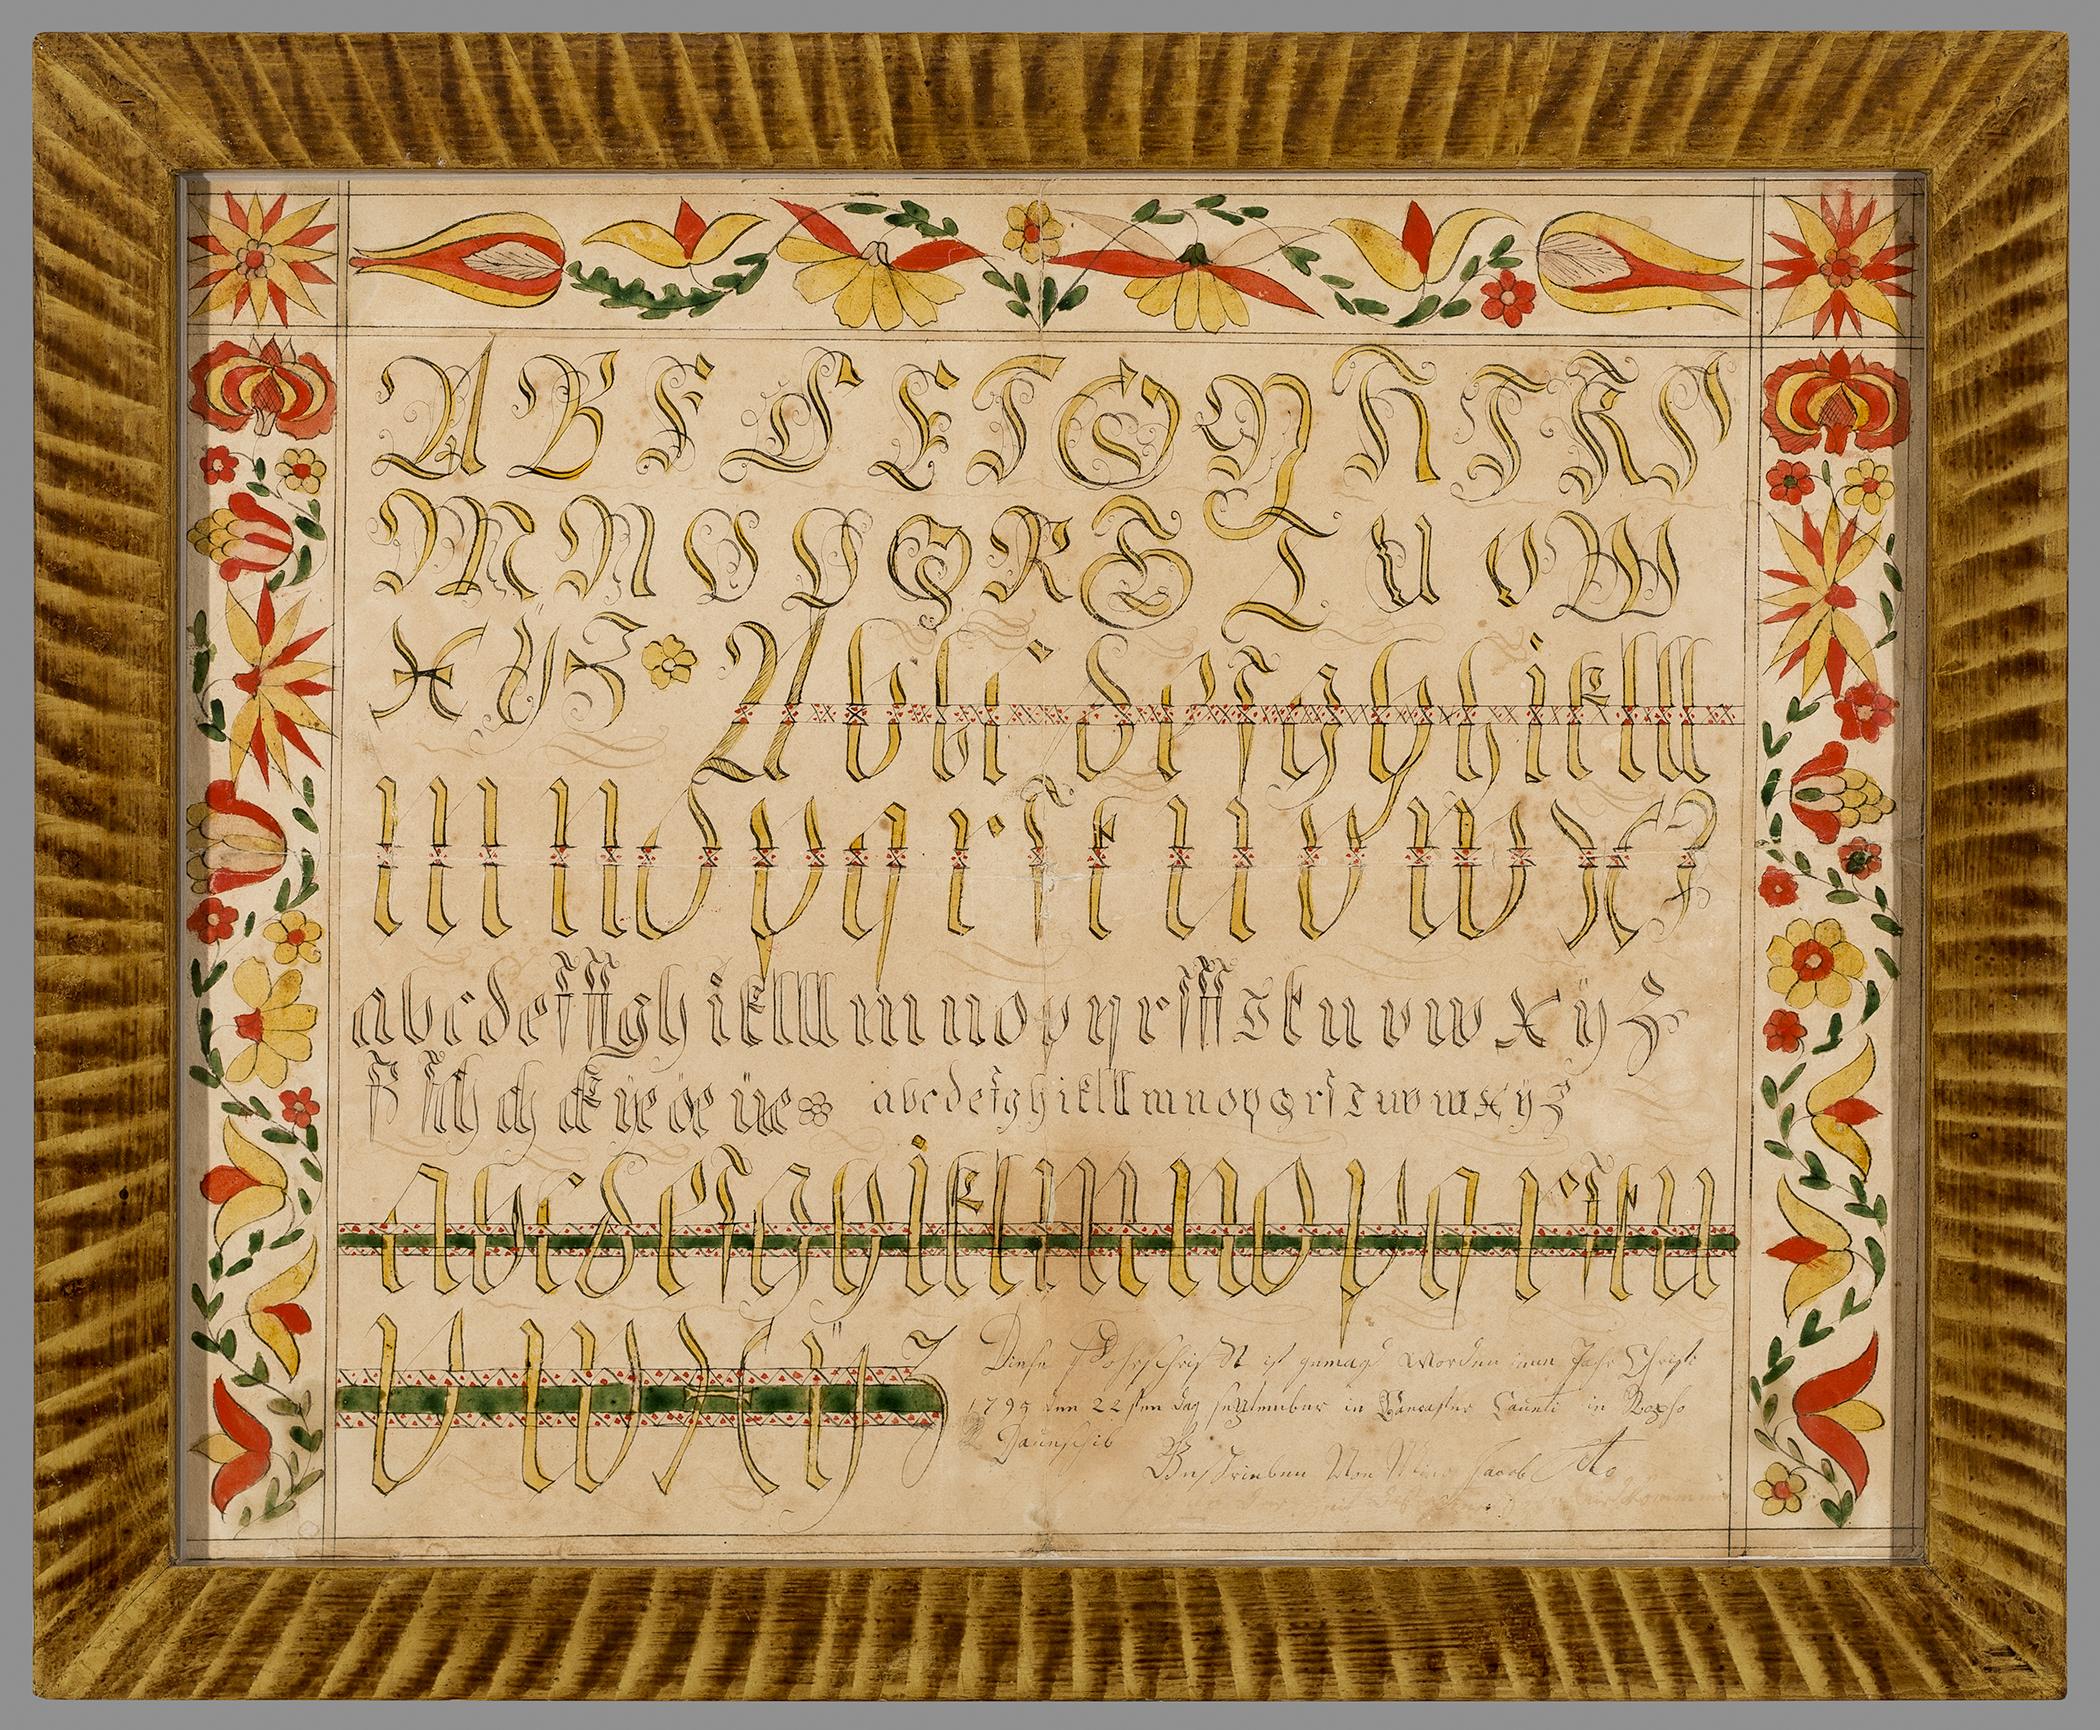 A B C D E F G H I K L
M N O P Q R S T U V W
X Y Z A b c d e f g h i k l ll
m n o p q r s t u v w x z
a b c d e f ff g h i k l ll m n o p q r ſ ſſ s t u v w x ÿ z
ß ſch ch ck a b c d e f g h i k l ll m n o p q r ſ s t u v w x ÿ z
a b c d e f g h i k l m n o p q r s t u
v w x ÿ z
Diese Vorschrift ist gemagd Worden imm Jahr Christi
1795 den 22 sten dag september in Lancaster Caunti in Rapho
Daunschib
Geschrieben Von Mir Jacob Otto